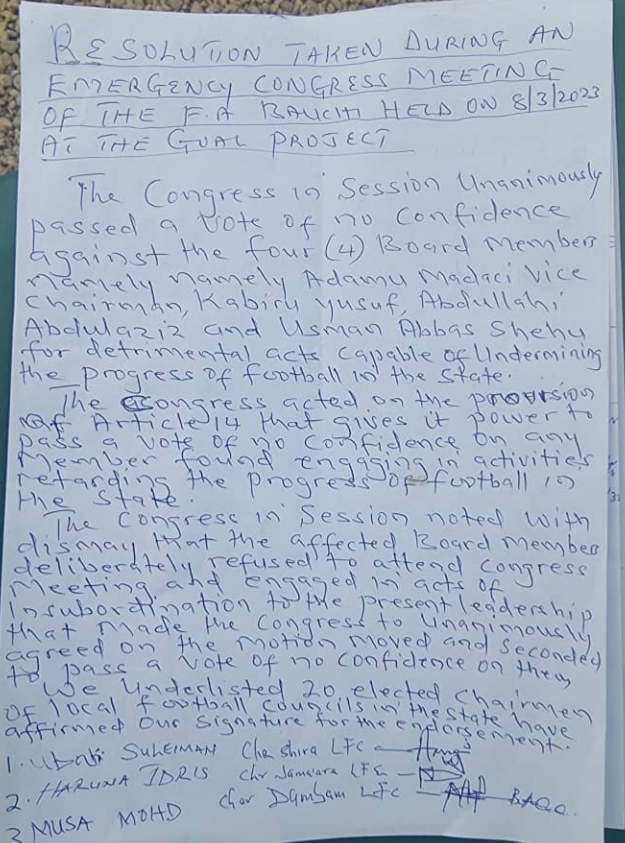 RESOLUTION TAKEN DURING AN
EMERGENCY CONGRESS MEETING
OF THE F.A BAUCHI HELD ON 8/3/2023
AT THE GOAL PROJECT
The Congress in Session Unanimously
passed a Vote of no Confidence
against the four (4) Board Members
namely namely Adamu Madaci Vice
Chairman, Kabiru Yusuf, Abdullahi
Abdulaziz and Usman Abbas Shehu
for detrimental acts Capable of Undermining
the progress of football in the State.
The Congress acted on the provision
of Article 14 that gives it power to
pass a Vote of no Confidence on any
Member found engaging in activities
retarding the progress of football in
the State.
The Congress in Session noted with
dismay that the affected Board Members
deliberately refused to attend Congress
Meeting and engaged in acts of
Insubordination to the present leadership
that made the Congress to Unanimously
agreed on the motion moved and Seconded
to pass a Vote of no Confidence on them
We Underlisted 20 elected Chairmen
of local football Councils in the State have
affirmed our Signature for the endorsement.
1. SULEIMAN Shira LFC
2. HARUNA IDRIS Chr Jama'are LFC
3 MUSA MOHD Chr Dambam LFC